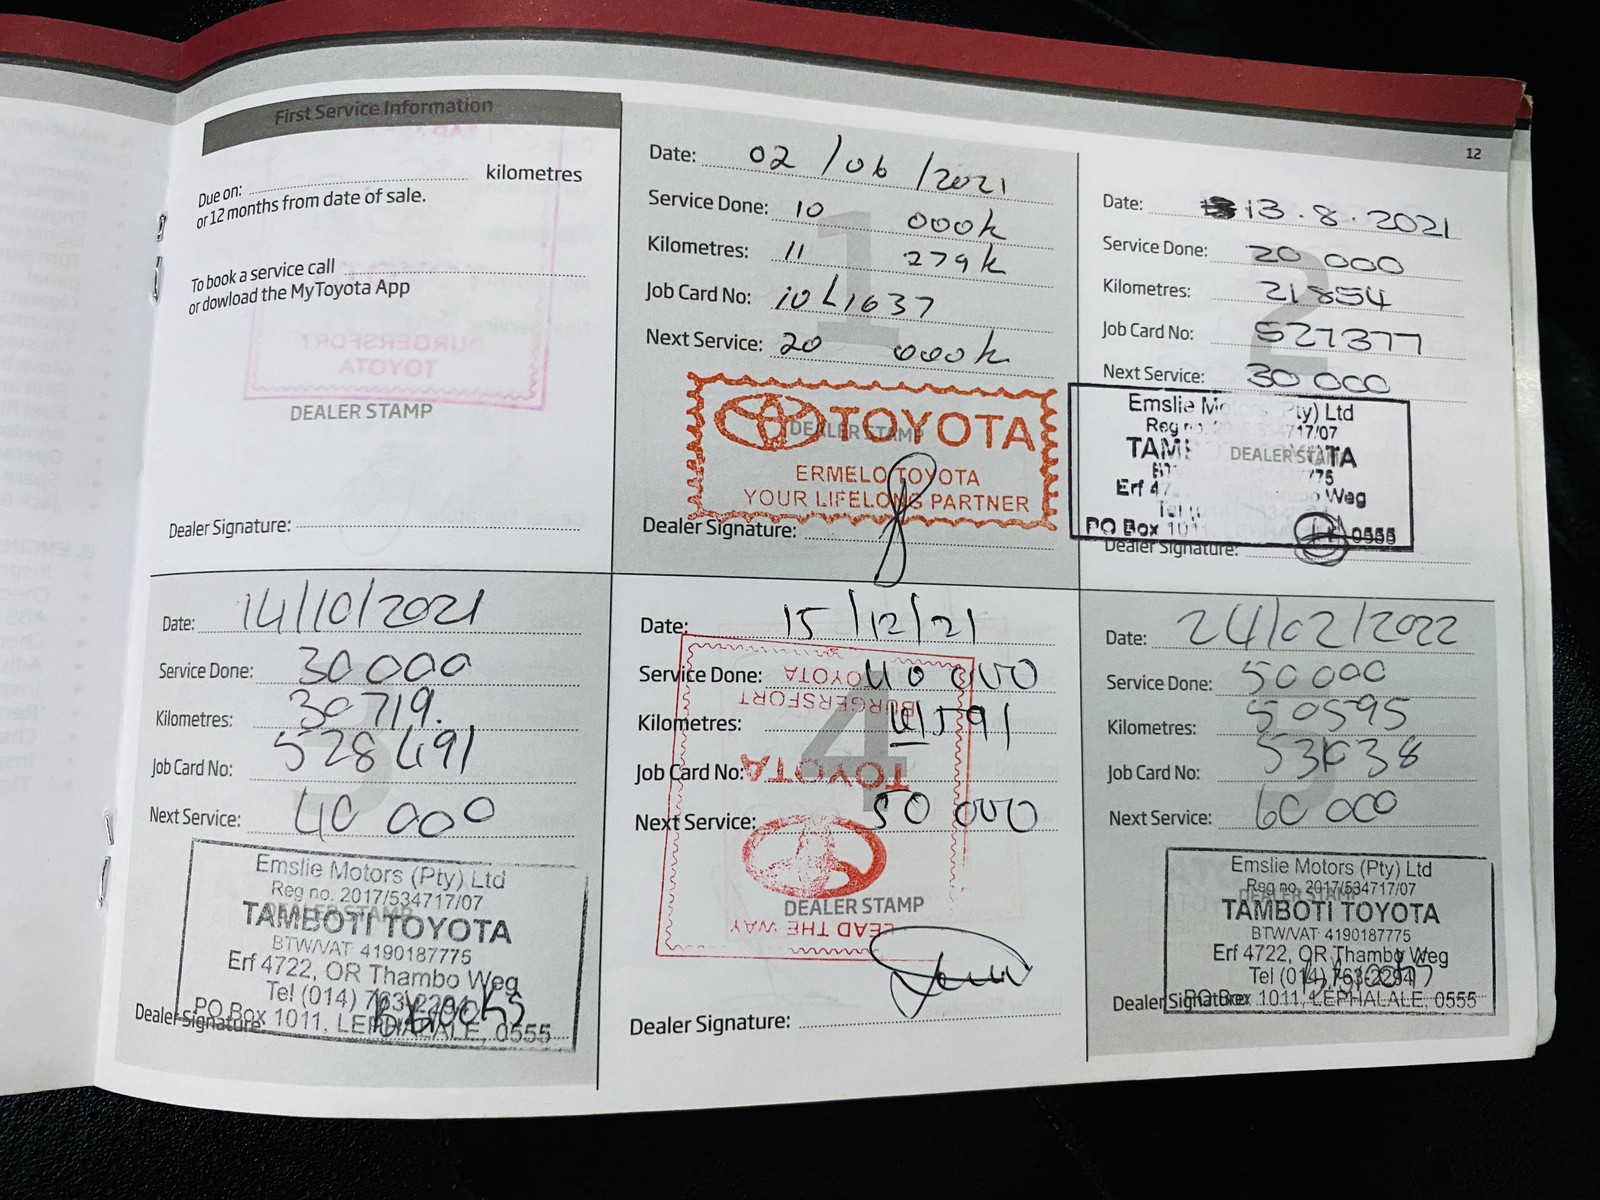 12
First Service Information
Due on: kilometres
or 12 months from date of sale.
To book a service call
or dowload the MyToyota App
DEALER STAMP
Dealer Signature:
Date: 02/06/2021
Service Done: 10 000k
Kilometres: 11 279k
Job Card No:
Next Service: 20 000k
TOYOTA
DEALER STAMP
ERMELO TOYOTA
YOUR LIFELONG PARTNER
Dealer Signature:
1
Date: 13.8.2021
Service Done: 20 000
Kilometres: 21854
Job Card No: 527377
Next Service: 30 000
Emslie (Pty) Ltd
Reg
DEALER
Erf Weg
PO Box 1011, 0555
Dealer Signature:
2
Date: 14/10/2021
Service Done: 30 000
Kilometres: 30719.
Job Card No: 528491
Next Service: 40 000
3
Emslie Motors (Pty) Ltd
Reg no. 2017/534717/07
DEALER STAMP
TAMBOTI TOYOTA
BTW/VAT 4190187775
Erf 4722, OR Thambo Weg
Tel (014) 763 2294
PO Box 1011, LEPHALALE, 0555
Dealer Signature:
Date: 15/12/21
Service Done: 40 000
Kilometres: 41591
Job Card No:
Next Service: 50 000
4
BURGERSFORT
TOYOTA
TOYOTA
LEAD THE WAY
DEALER STAMP
Dealer Signature:
Date: 24/02/2022
Service Done: 50 000
Kilometres: 50595
Job Card No:
Next Service: 60 000
5
Emslie Motors (Pty) Ltd
Reg no. 2017/534717/07
DEALER STAMP
TAMBOTI TOYOTA
BTW/VAT 4190187775
Erf 4722, OR Thambo Weg
Tel (014) 763 2294
PO Box 1011, LEPHALALE, 0555
Dealer Signature: